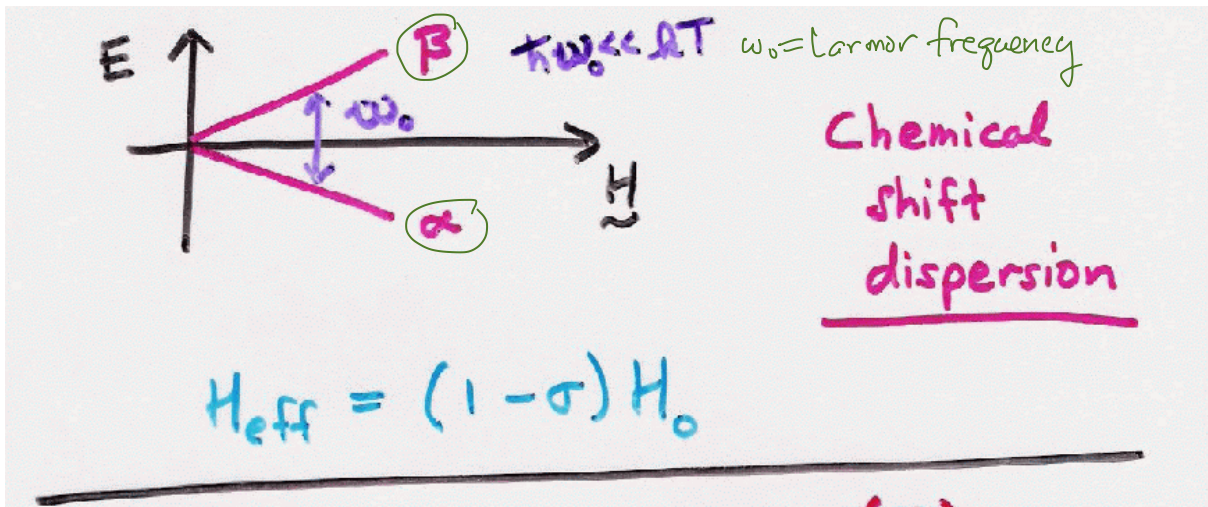 E
β
ħω₀<<kT
ω₀=Larmor frequency
ω₀
H
α
Chemical
shift
dispersion
H_eff = (1-σ)H₀